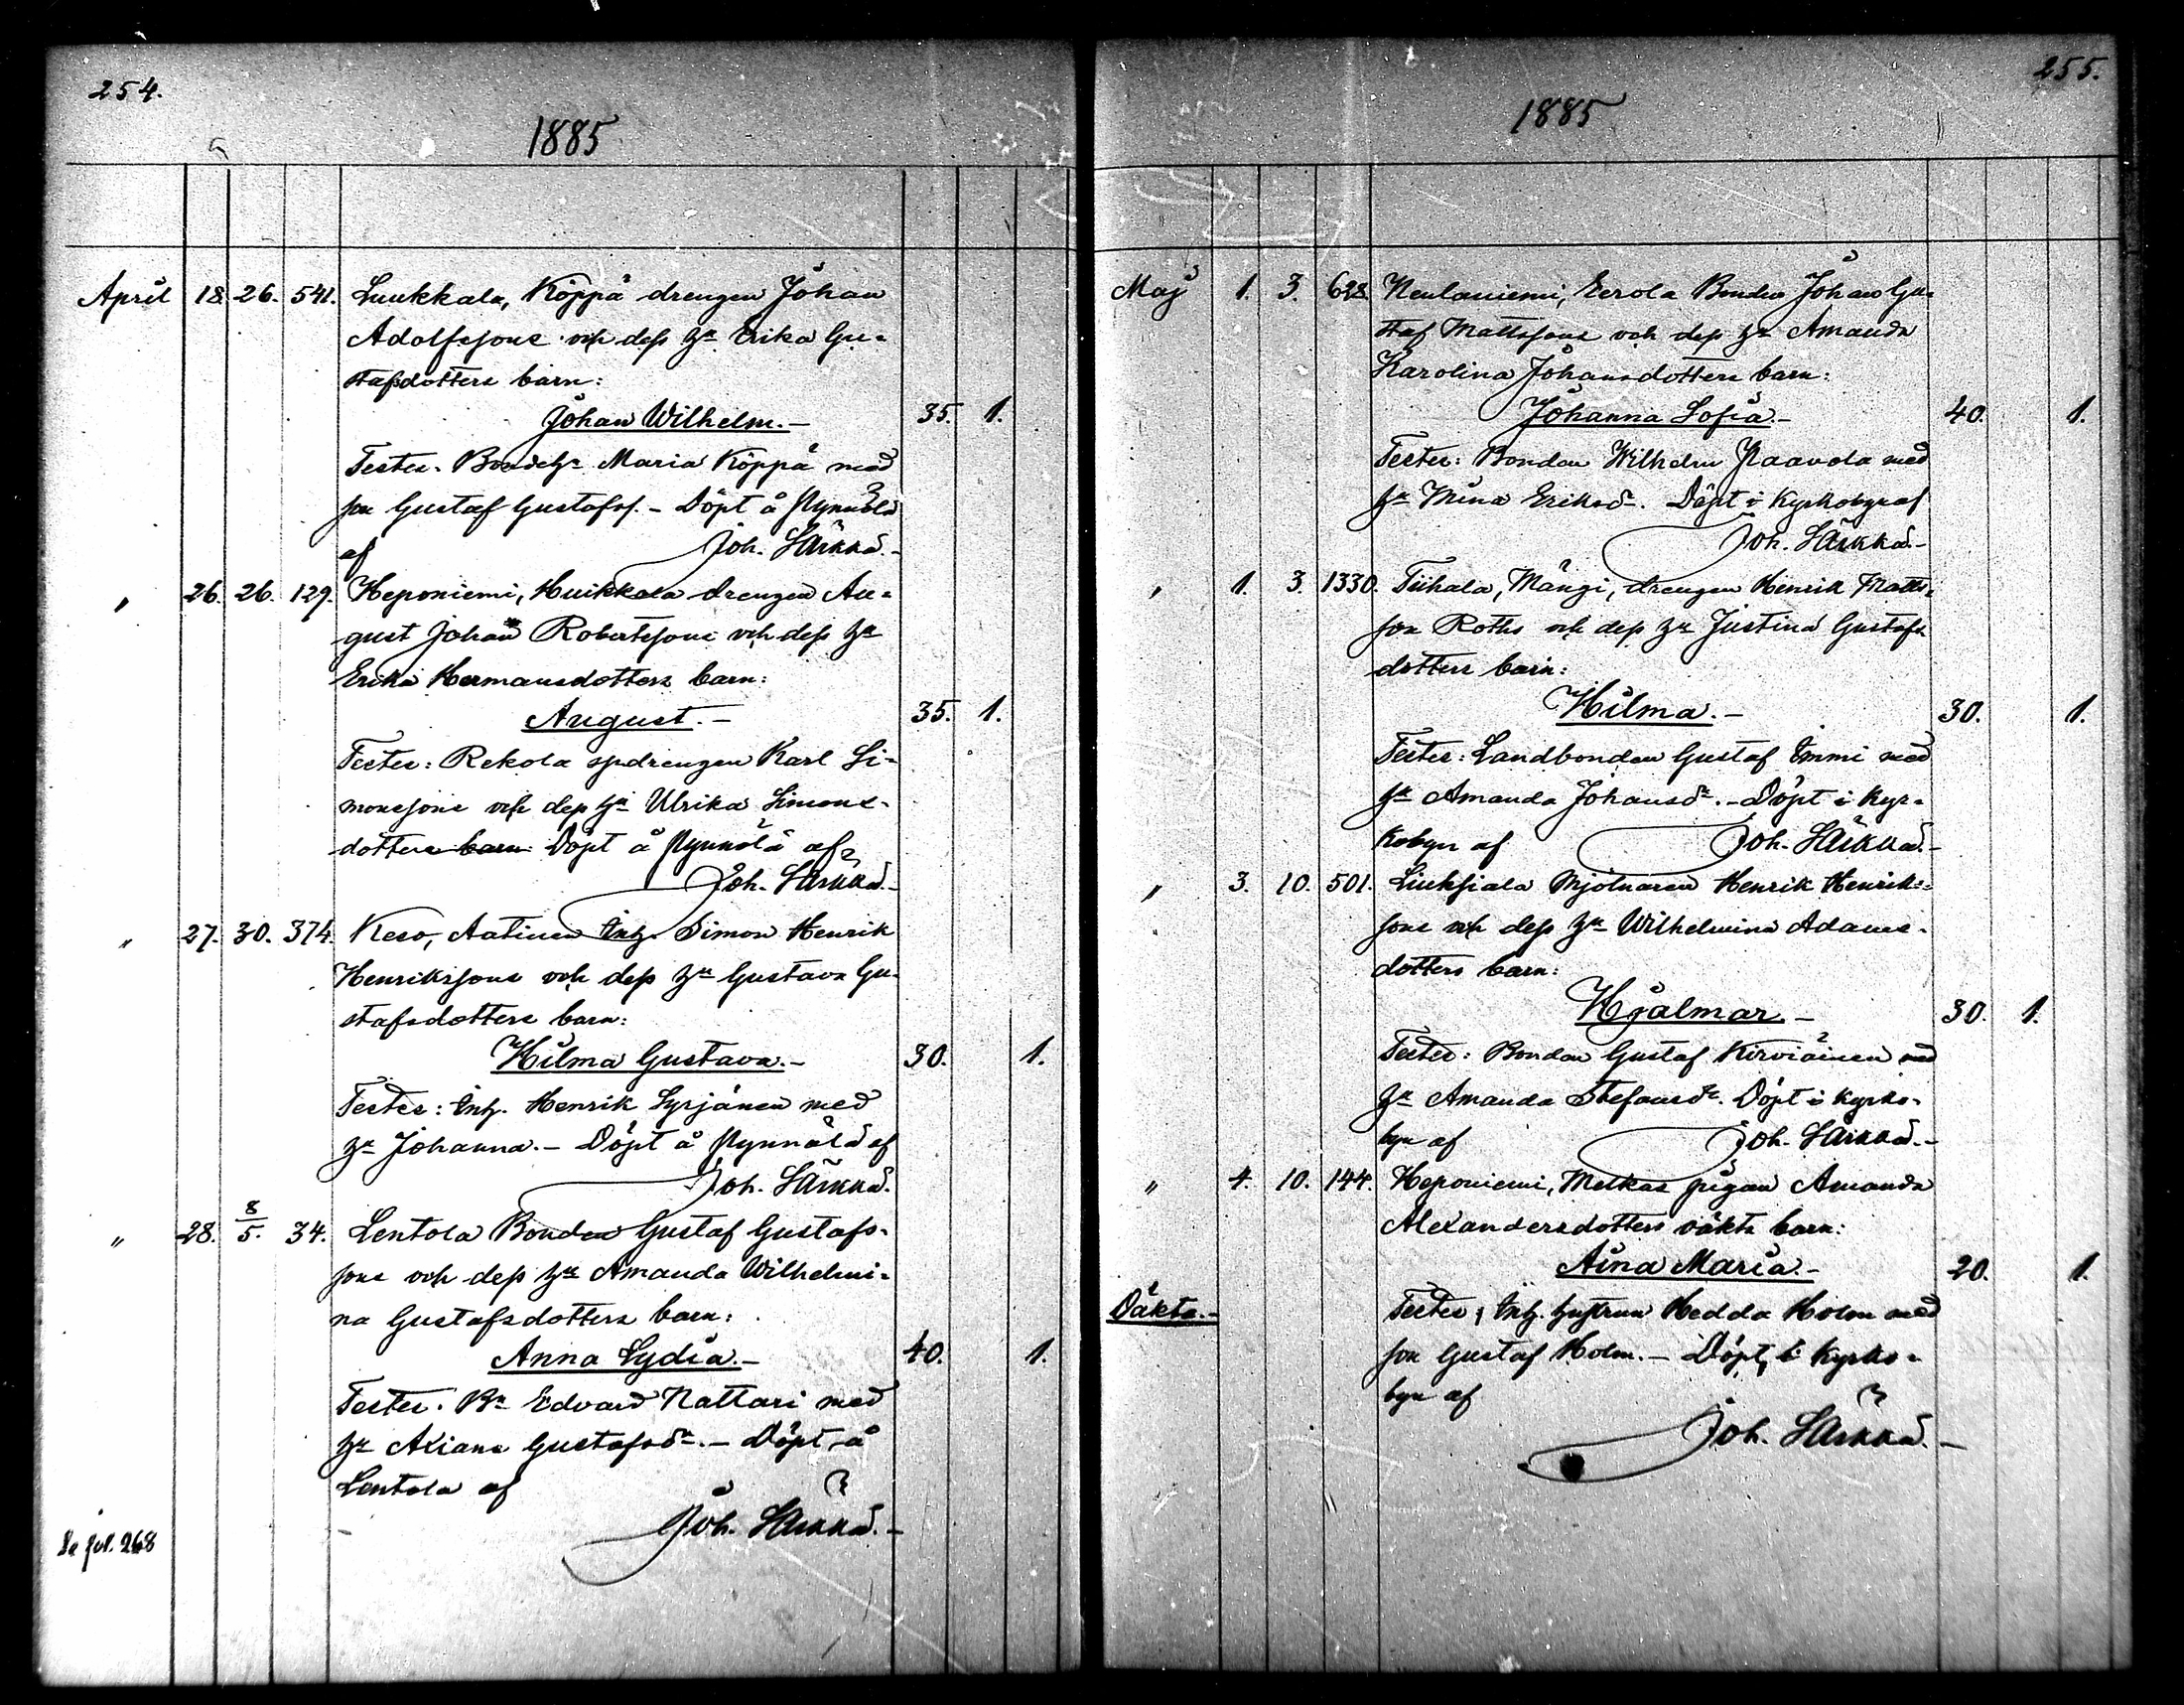 254.
1885
April 18. 26. 541. Luukkala, Köppä drengen Johan
Adolfssons och dess hu Erika Gu-
stafsdotters barn:
Johan Wilhelm.- 35. 1.
Testes: Bondehu Maria Köppä med
son Gustaf Gustafss. - Döpt å Pynnölä
af Joh. Särkkä.-
" 26. 26. 129. Heponiemi, Huikkala drengen Au-
gust Johan Robertssons och dess hu
Erika Hermansdotters barn:
August.- 35. 1.
Testes: Rekola spdrengen Karl Si-
monssons och dess hu Ulrika Simons-
dotters barn Döpt å Pynnölä af
Joh. Särkkä.-
" 27. 30. 374. Keso, Aatinen Inh. Simon Henrik
Henrikssons och dess hu Gustava Gu-
stafsdotters barn:
Hilma Gustava.- 30. 1.
Testes: Inh. Henrik Syrjänen med
hu Johanna.- Döpt å Pynnölä af
Joh. Särkkä.
" 28. 8/5. 34. Lentola Bonden Gustaf Gustafs-
sons och dess hu Amanda Wilhelmi-
na Gustafsdotters barn:
Anna Lydia.- 40. 1.
Testes: Bn Edvard Nattari med
hu Axiana Gustafsdr.- Döpt å
Lentola af
Joh. Särkkä.-
Se fol. 268
255.
1885
Maj 1. 3. 628. Neulaniemi, Eerola Bonden Johan Gu-
staf Mattssons och dess hu Amanda
Karolina Johansdotters barn:
Johanna Sofia.- 40. 1.
Testes: Bonden Wilhelm Paavola med
hu Mina Eriksdr. Döpt i Kyrkobyn af
Joh. Särkkä.-
" 1. 3. 1330. Tiihala, Mängi, drengen Henrik Matts-
son Roths och dess hu Justina Gustafs
dotters barn:
Hilma.- 30. 1.
Testes: Landbonden Gustaf Immi med
hu Amanda Johansdr.- Döpt i Kyr-
kobyn af Joh. Särkkä.-
" 3. 10. 501. Liuksiala Mjölnaren Henrik Henriks-
sons och dess hu Wilhelmina Adams-
dotters barn:
Hjalmar.- 30. 1.
Testes: Bonden Gustaf Kirviäinen med
hu Amanda Stefansdr. Döpt i Kyrko-
byn af Joh. Särkkä.-
" 4. 10. 144. Heponiemi, Melkas pigan Amanda
Alexandersdotters oäkta barn:
Aina Maria.- 20. 1.
Oäkta.- Testes: Inh. hustrun Hedda Holm med
son Gustaf Holm.- Döpt i Kyrko-
byn af
Joh. Särkkä.-